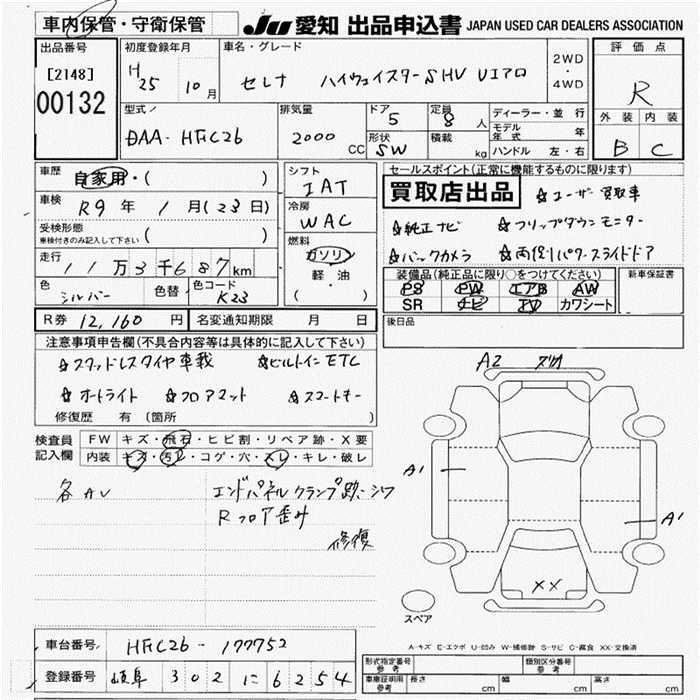 車内保管・守衛保管 JU 愛知 出品申込書 JAPAN USED CAR DEALERS ASSOCIATION
出品番号 初度登録年月 車名・グレード 評価点
[2148] H25 10月 セレナ ハイウェイスターSHV Uエアロ 2WD・4WD R
00132
型式 DAA-HFC26 排気量 2000 CC ドア 5 定員 8人 ディーラー・並行 外装 内装
形状 SW 積載 kg モデル年式 年 B C
ハンドル 左・右
車歴 自家用・( ) シフト IAT セールスポイント(正常に機能するものに限ります)
車検 R9年 1月(23日) 冷房 WAC 買取店出品 ☆ユーザー買取車
受検形態 車検付きのみ記入して下さい ( ) ☆純正ナビ ☆フリップダウンモニター
走行 11万3千687km 燃料 ガソリン ☆バックカメラ ☆両側パワースライドドア
色 シルバー 色替 色コード K23 軽油 ( )
装備品(純正品に限り○をつけてください) 新車保証書
PS PW エアB AW
SR ナビ TV カワシート
R券 12,160円 名変通知期限 月 日 後日品
注意事項申告欄(不具合内容等は具体的に記入して下さい)
☆スタッドレスタイヤ車載 ☆ビルトインETC
☆オートライト ☆フロアマット ☆スマートキー
修復歴 有 (箇所 )
検査員記入欄 FW キズ・飛石・ヒビ割・リペア跡・X要
内装 キズ・汚レ・コゲ・穴・スレ・キレ・破レ
各AU エンドパネルクランプ跡・シワ
Rフロア歪み
修復
A2
A1
A1
XX
スペア
A-キズ E-エクボ U-凹み W-補修跡 S-サビ C-腐食 XX-交換済
車台番号 HFC26-177752
登録番号 岐阜 302 に 6254
形式指定番号 参考 類別区分番号 参考
車庫証明用 参考 長さ cm 幅 cm 高さ cm